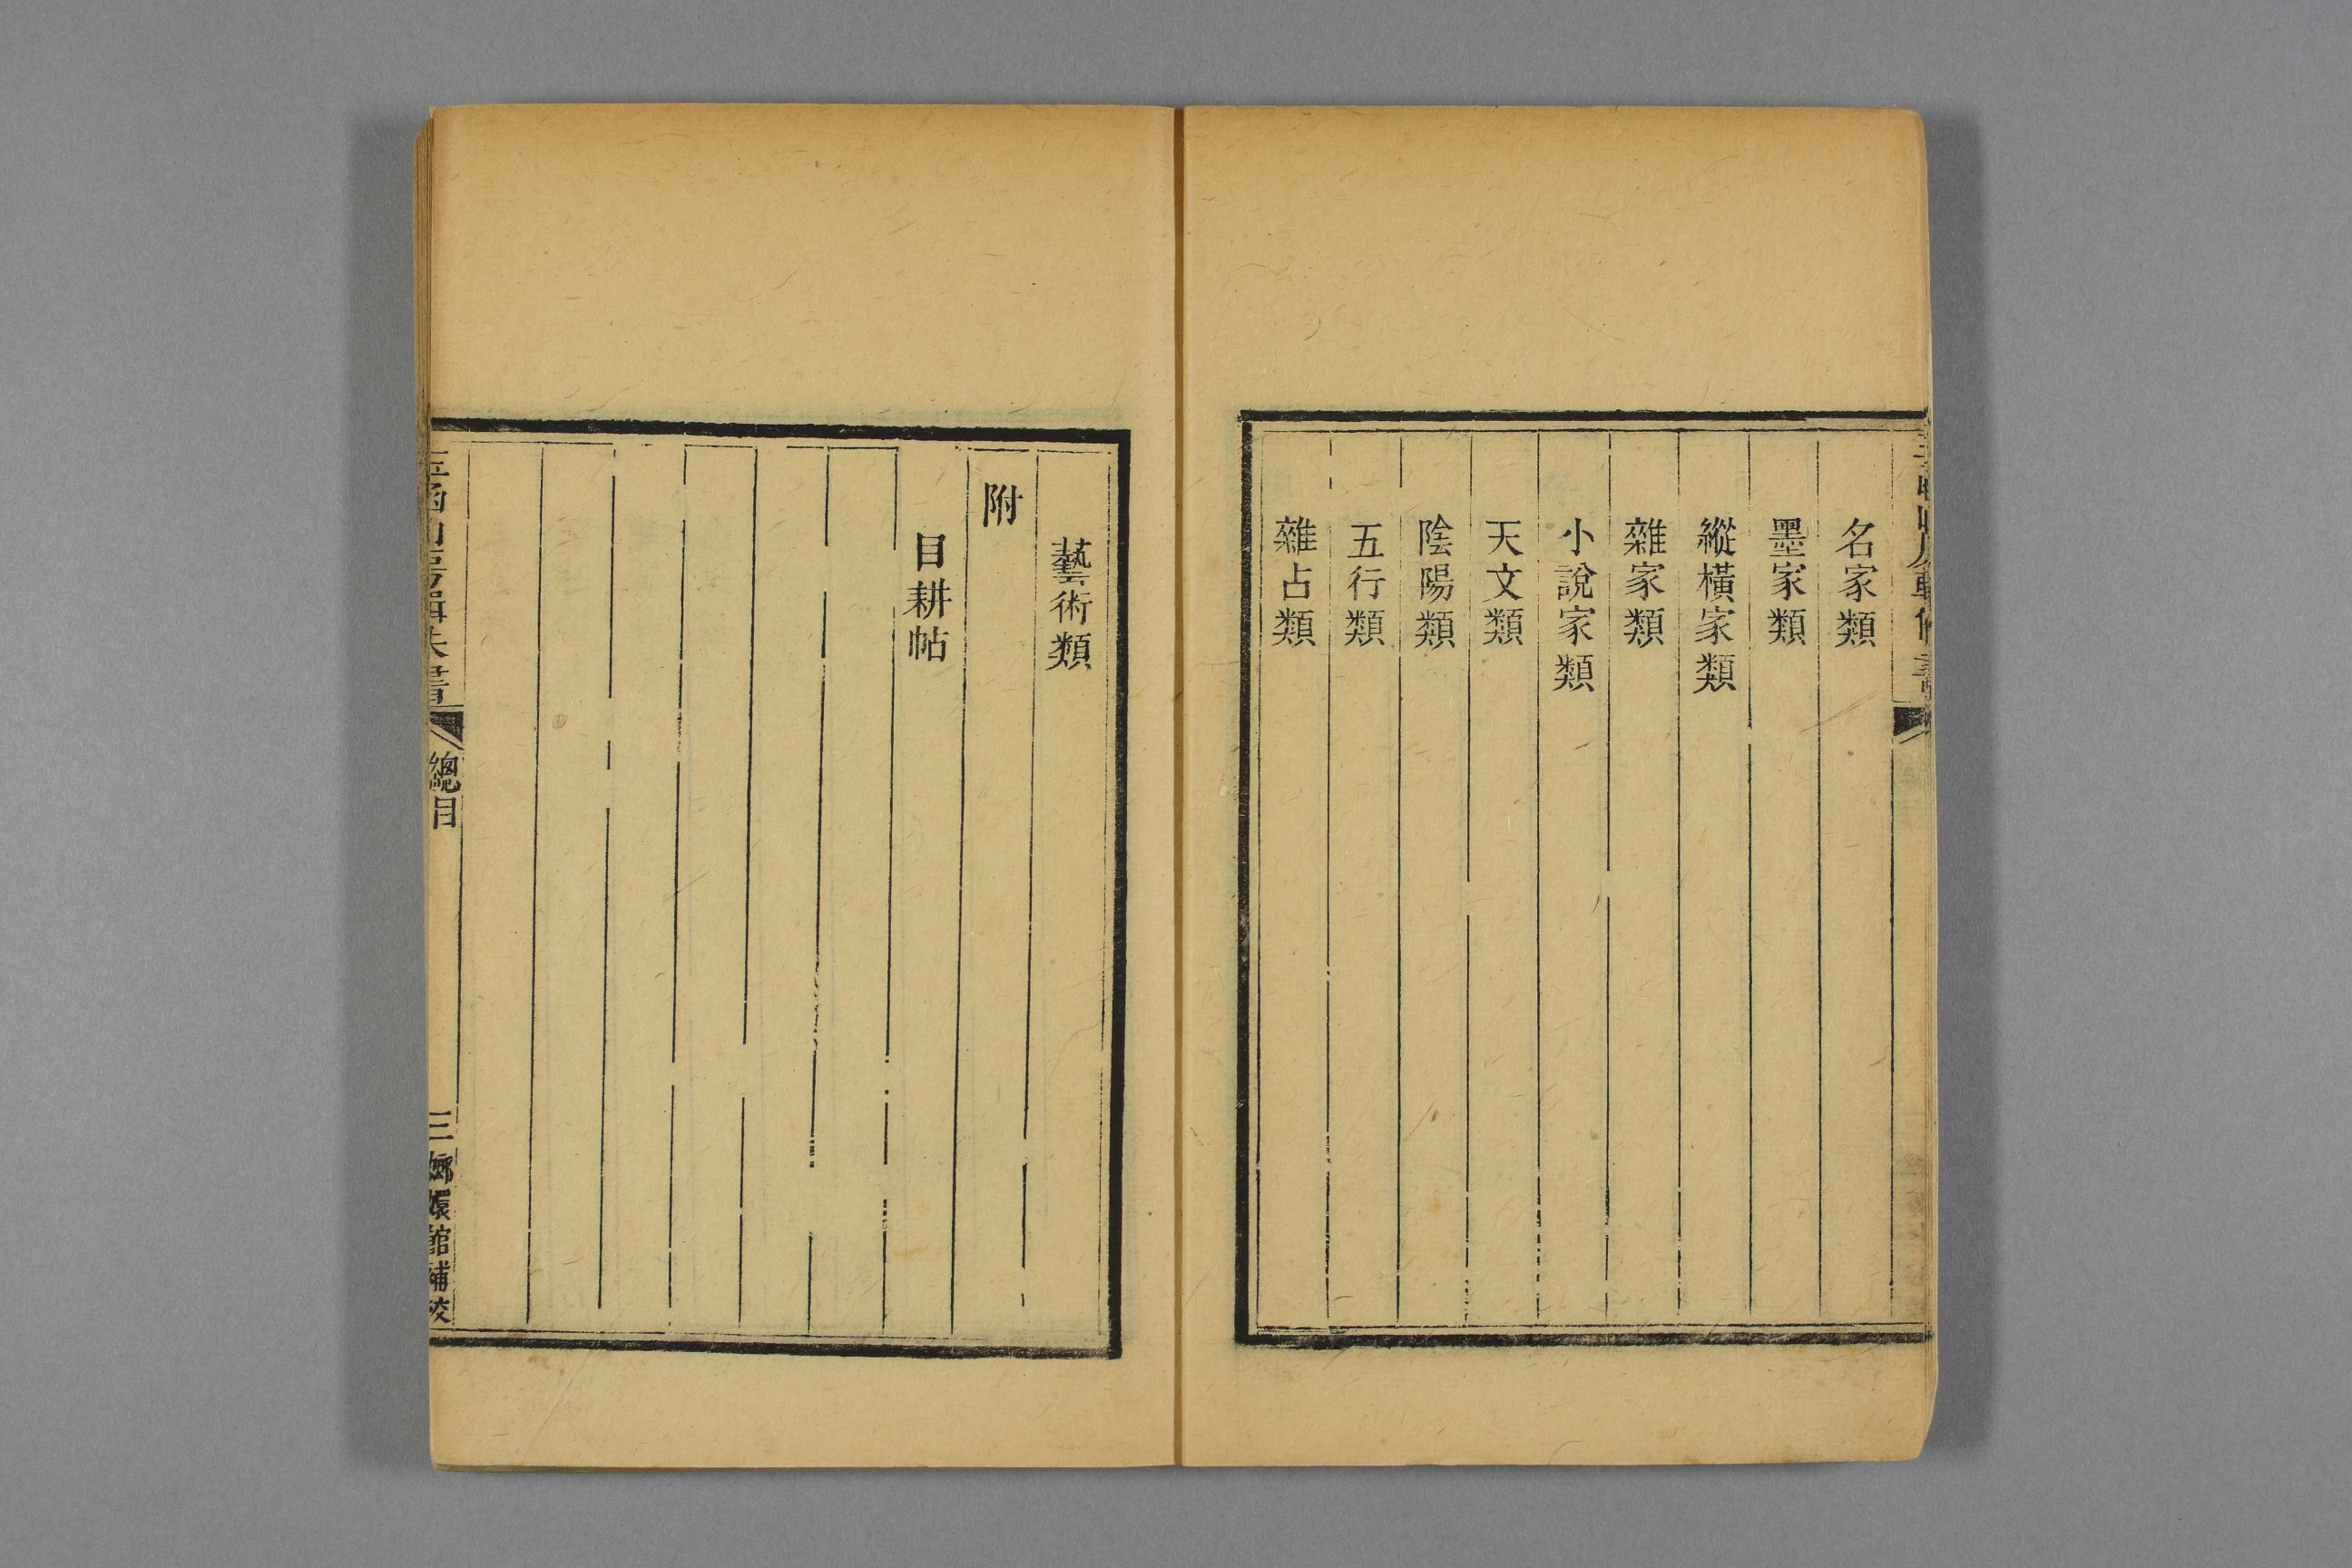 名家類
墨家類
縱橫家類
雜家類
小說家類
天文類
陰陽類
五行類
雜占類
藝術類
附
目耕帖
玉函山房輯佚書
總目
三
嫏嬛館補校